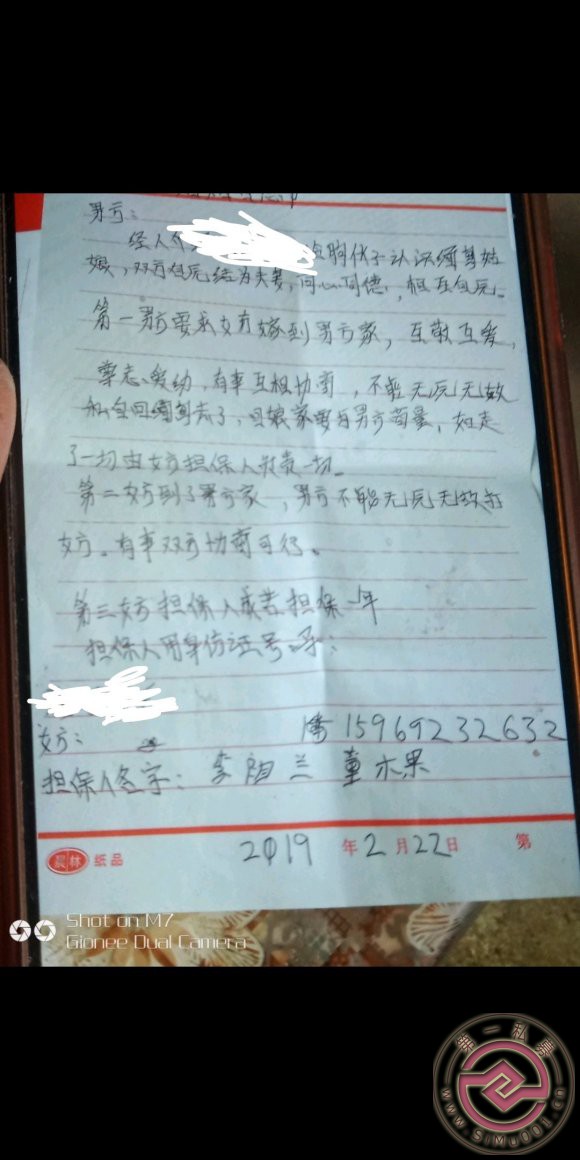 男方：
经人介
认识缅甸姑
娘，双方自愿结为夫妻，同心同德，相互自愿。
第一男方要求女方嫁到男方家，互敬互爱，
尊老爱幼，有事互相协商，不能无原无故
私自回缅甸走了，回娘家要与男方商量，如走
了一切由女方担保人负责一切。
第二女方到了男方家，男方不能无原无故打
女方。有事双方协商可行。
第三女方担保人承若担保一年
担保人用身份证号码：
女方： 15969232632
担保人签字：李 兰 董木果
2019 年 2 月 22 日 第
晨林 纸品
Shot on M7
Gionee Dual Camera
第一私募
www.simu001.cn